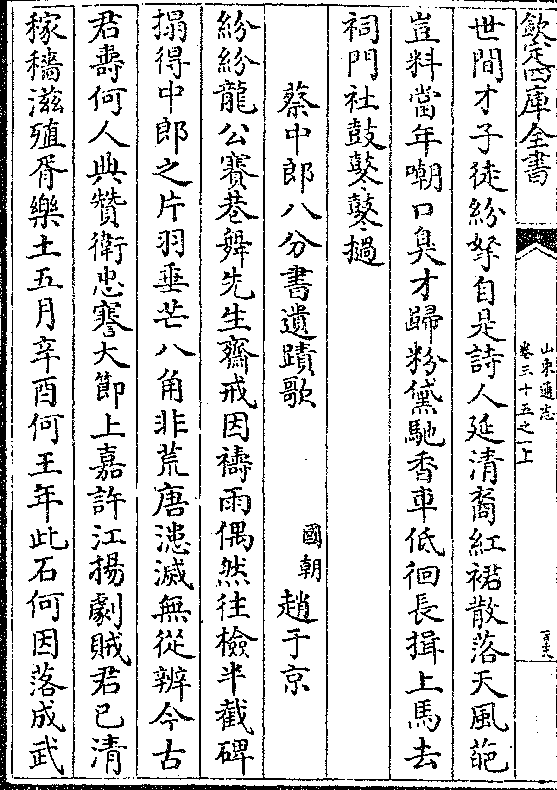 欽定四庫全書
山東通志
卷三十五之一上
世間才子徒紛拏自是詩人延清裔紅裙散落天風葩
豈料當年嘲口臭才歸粉黛馳香車低徊長揖上馬去
祠門社鼓鼕鼕撾
蔡中郎八分書遺蹟歌
國朝趙于京
紛紛龍公賽巷舞先生齋戒因禱雨偶然往檢半截碑
搨得中郎之片羽垂芒八角非荒唐漶滅無從辨今古
君壽何人典贊衛忠謇大節上嘉許江揚劇賊君已清
稼穡滋殖胥樂土五月辛酉何王年此石何因落成武